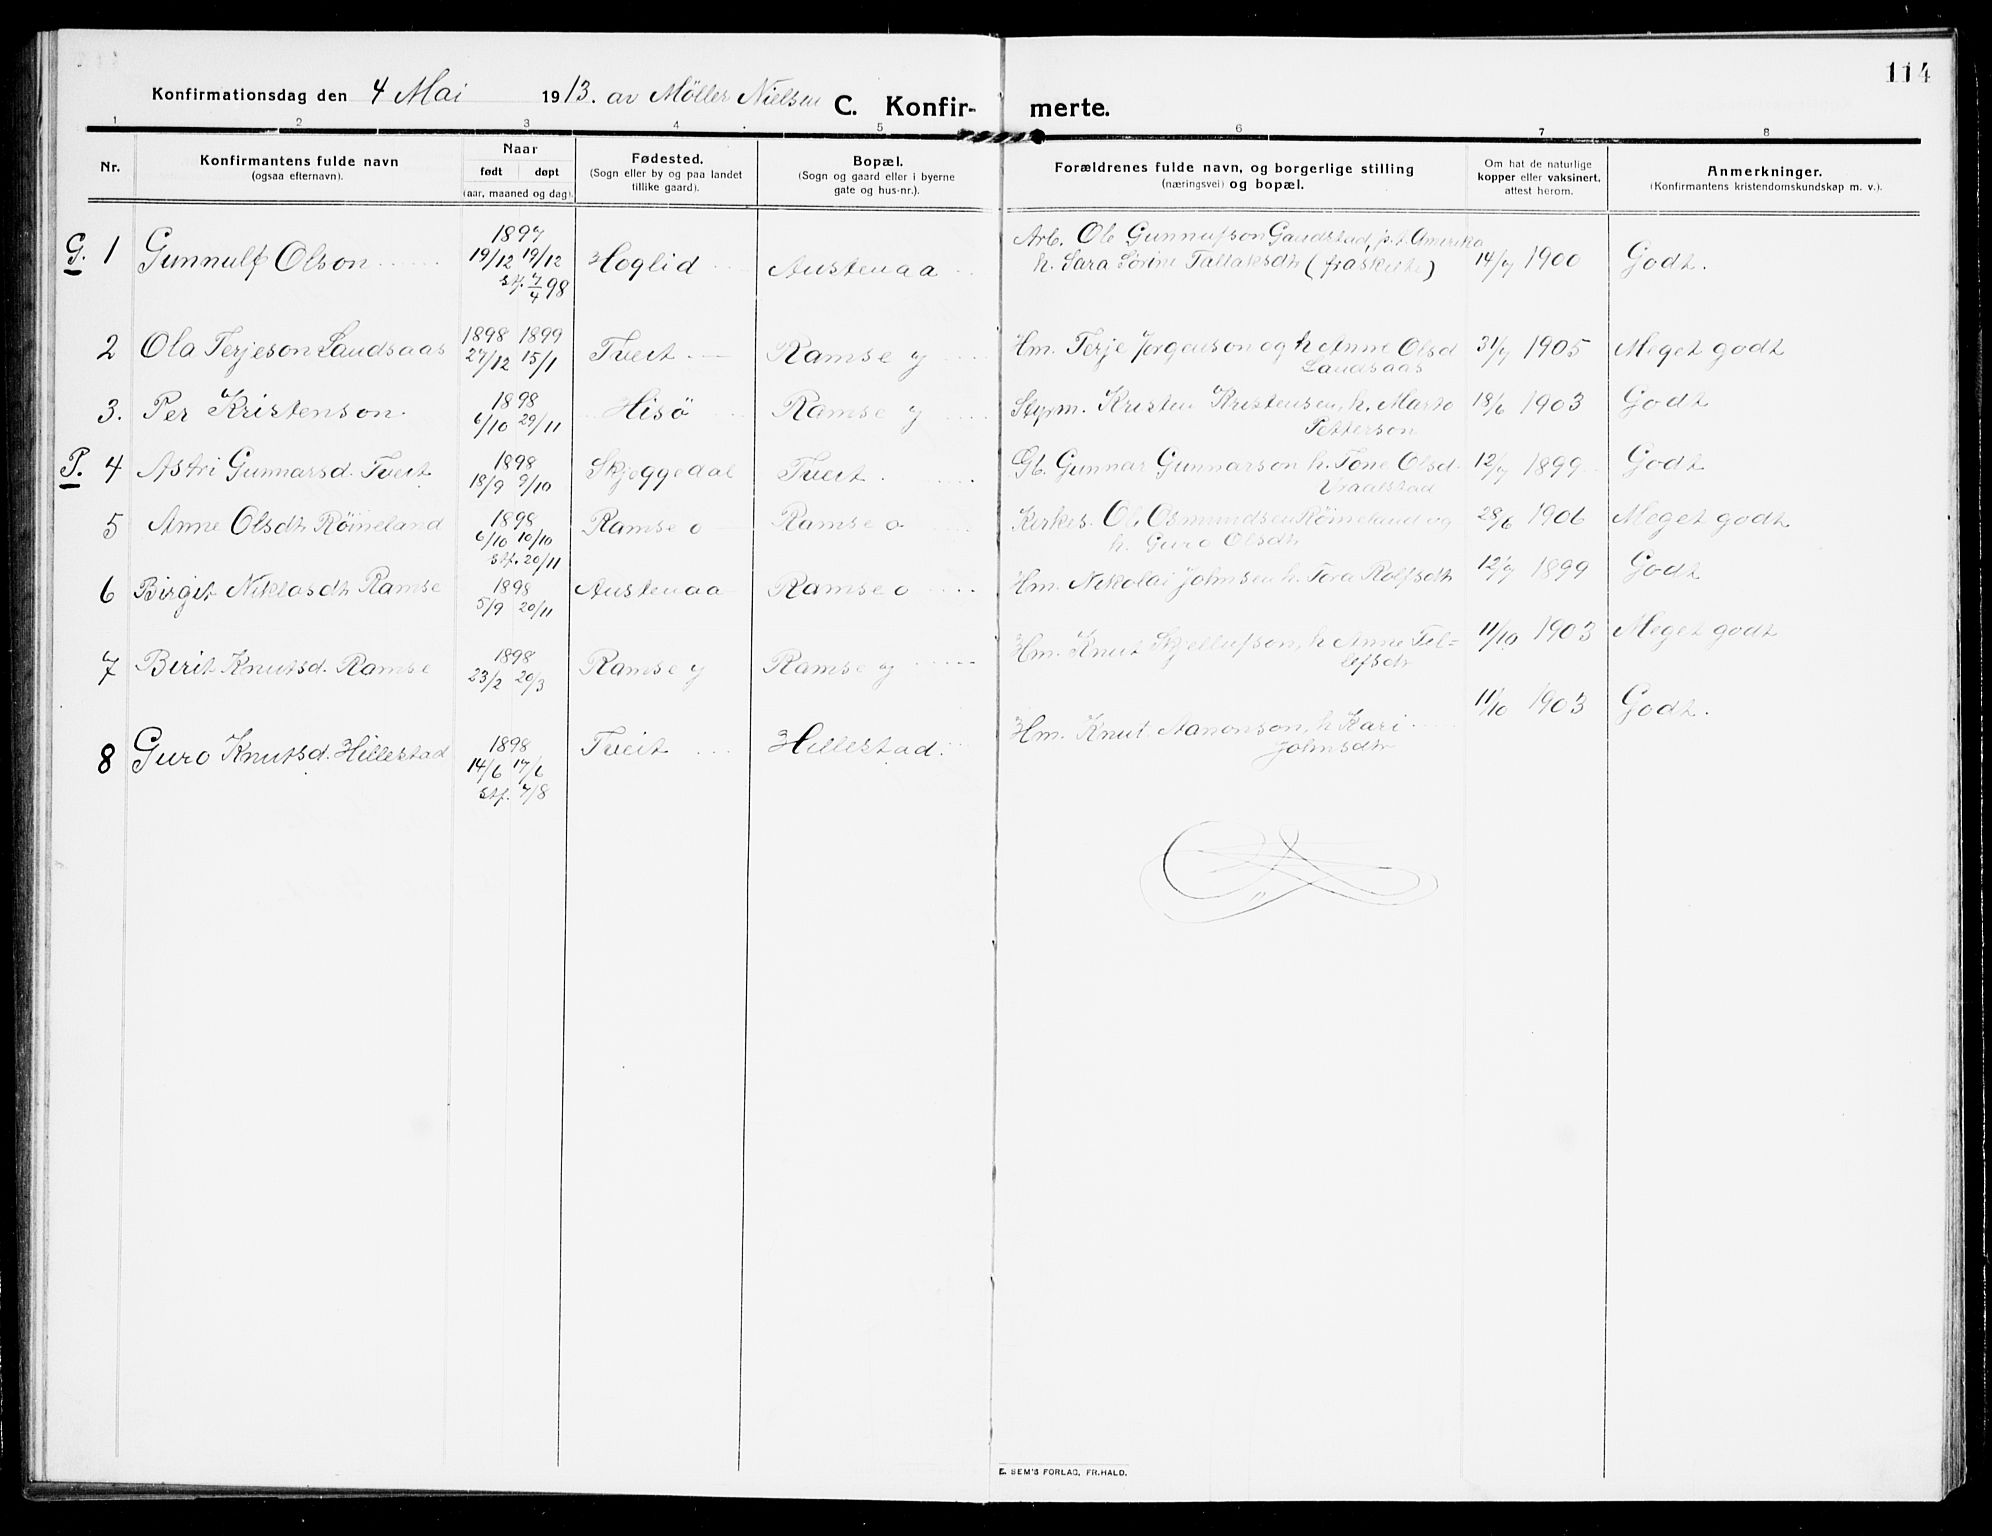 114
Konfirmationsdag den 4 Mai 1913. av Möller Nielsen C. Konfir- merte.
1 2 3 4 5 6 7 8
Nr.
Konfirmantens fulde navn
(ogsaa efternavn).
Naar
født døpt
(aar, maaned og dag).
Fødested.
(Sogn eller by og paa landet
tillike gaard).
Bopæl.
(Sogn og gaard eller i byerne
gate og hus-nr.).
Forældrenes fulde navn, og borgerlige stilling
(næringsvei) og bopæl.
Om hat de naturlige
kopper eller vaksinert,
attest herom.
Anmerkninger.
(Konfirmantens kristendomskundskap m. v.).
G. 1 Gunnulf Olson
1897
19/12 19/12
st. 7/4 98
Hoglid Austenaa
Arb. Ole Gunnufson Gaudstad, p.t. Amerika
h. Sara Sörine Tallaksdtr (fraskilte)
14/7 1900 Godt.
2 Ola Terjeson Laudsaas
1898 1899
27/12 15/1
Tveit Ramse y
Hm. Terje Jörgenson og h Anne Olsd
Laudsaas
31/7 1905 Meget godt
3. Per Kristenson.
1898
6/10 29/11
Hisö Ramse y
Styrm. Kristen Kristensen, h. Marta
Petterson
18/6 1903 Godt
P. 4 Astri Gunnarsd. Tveit
1898
18/9 9/10
Skjeggedal Tveit.
Gb. Gunnar Gunnarson h. Tone Olsd.
Vraalstad
12/7 1899 Godt
5 Anne Olsdtr Röineland
1898
6/10 10/10
stf. 20/11
Ramse o Ramse o
Kirkes. Ole Osmundsen Röineland og
h. Guro Olsdtr
28/6 1906 Meget godt
6 Birgit Niklasdtr Ramse
1898
5/9 20/11
Austenaa Ramse o
Hm. Nikolai Johnsen h. Tora Rolfsdtr
12/7 1899 Godt
7 Berit Knutsd. Ramse
1898
23/2 20/3
Ramse y Ramse y
Hm. Knut Skjellufson, h Anne Tel-
lefsdtr
11/10 1903 Meget godt
8 Guro Knutsd. Hillestad
1898
14/6 17/6
stf. 7/8
Tveit Hillestad.
Hm. Knut Aanonson, h Kari
Johnsdtr
11/10 1903 Godt.
E. SEM'S FORLAG, FR.HALD.